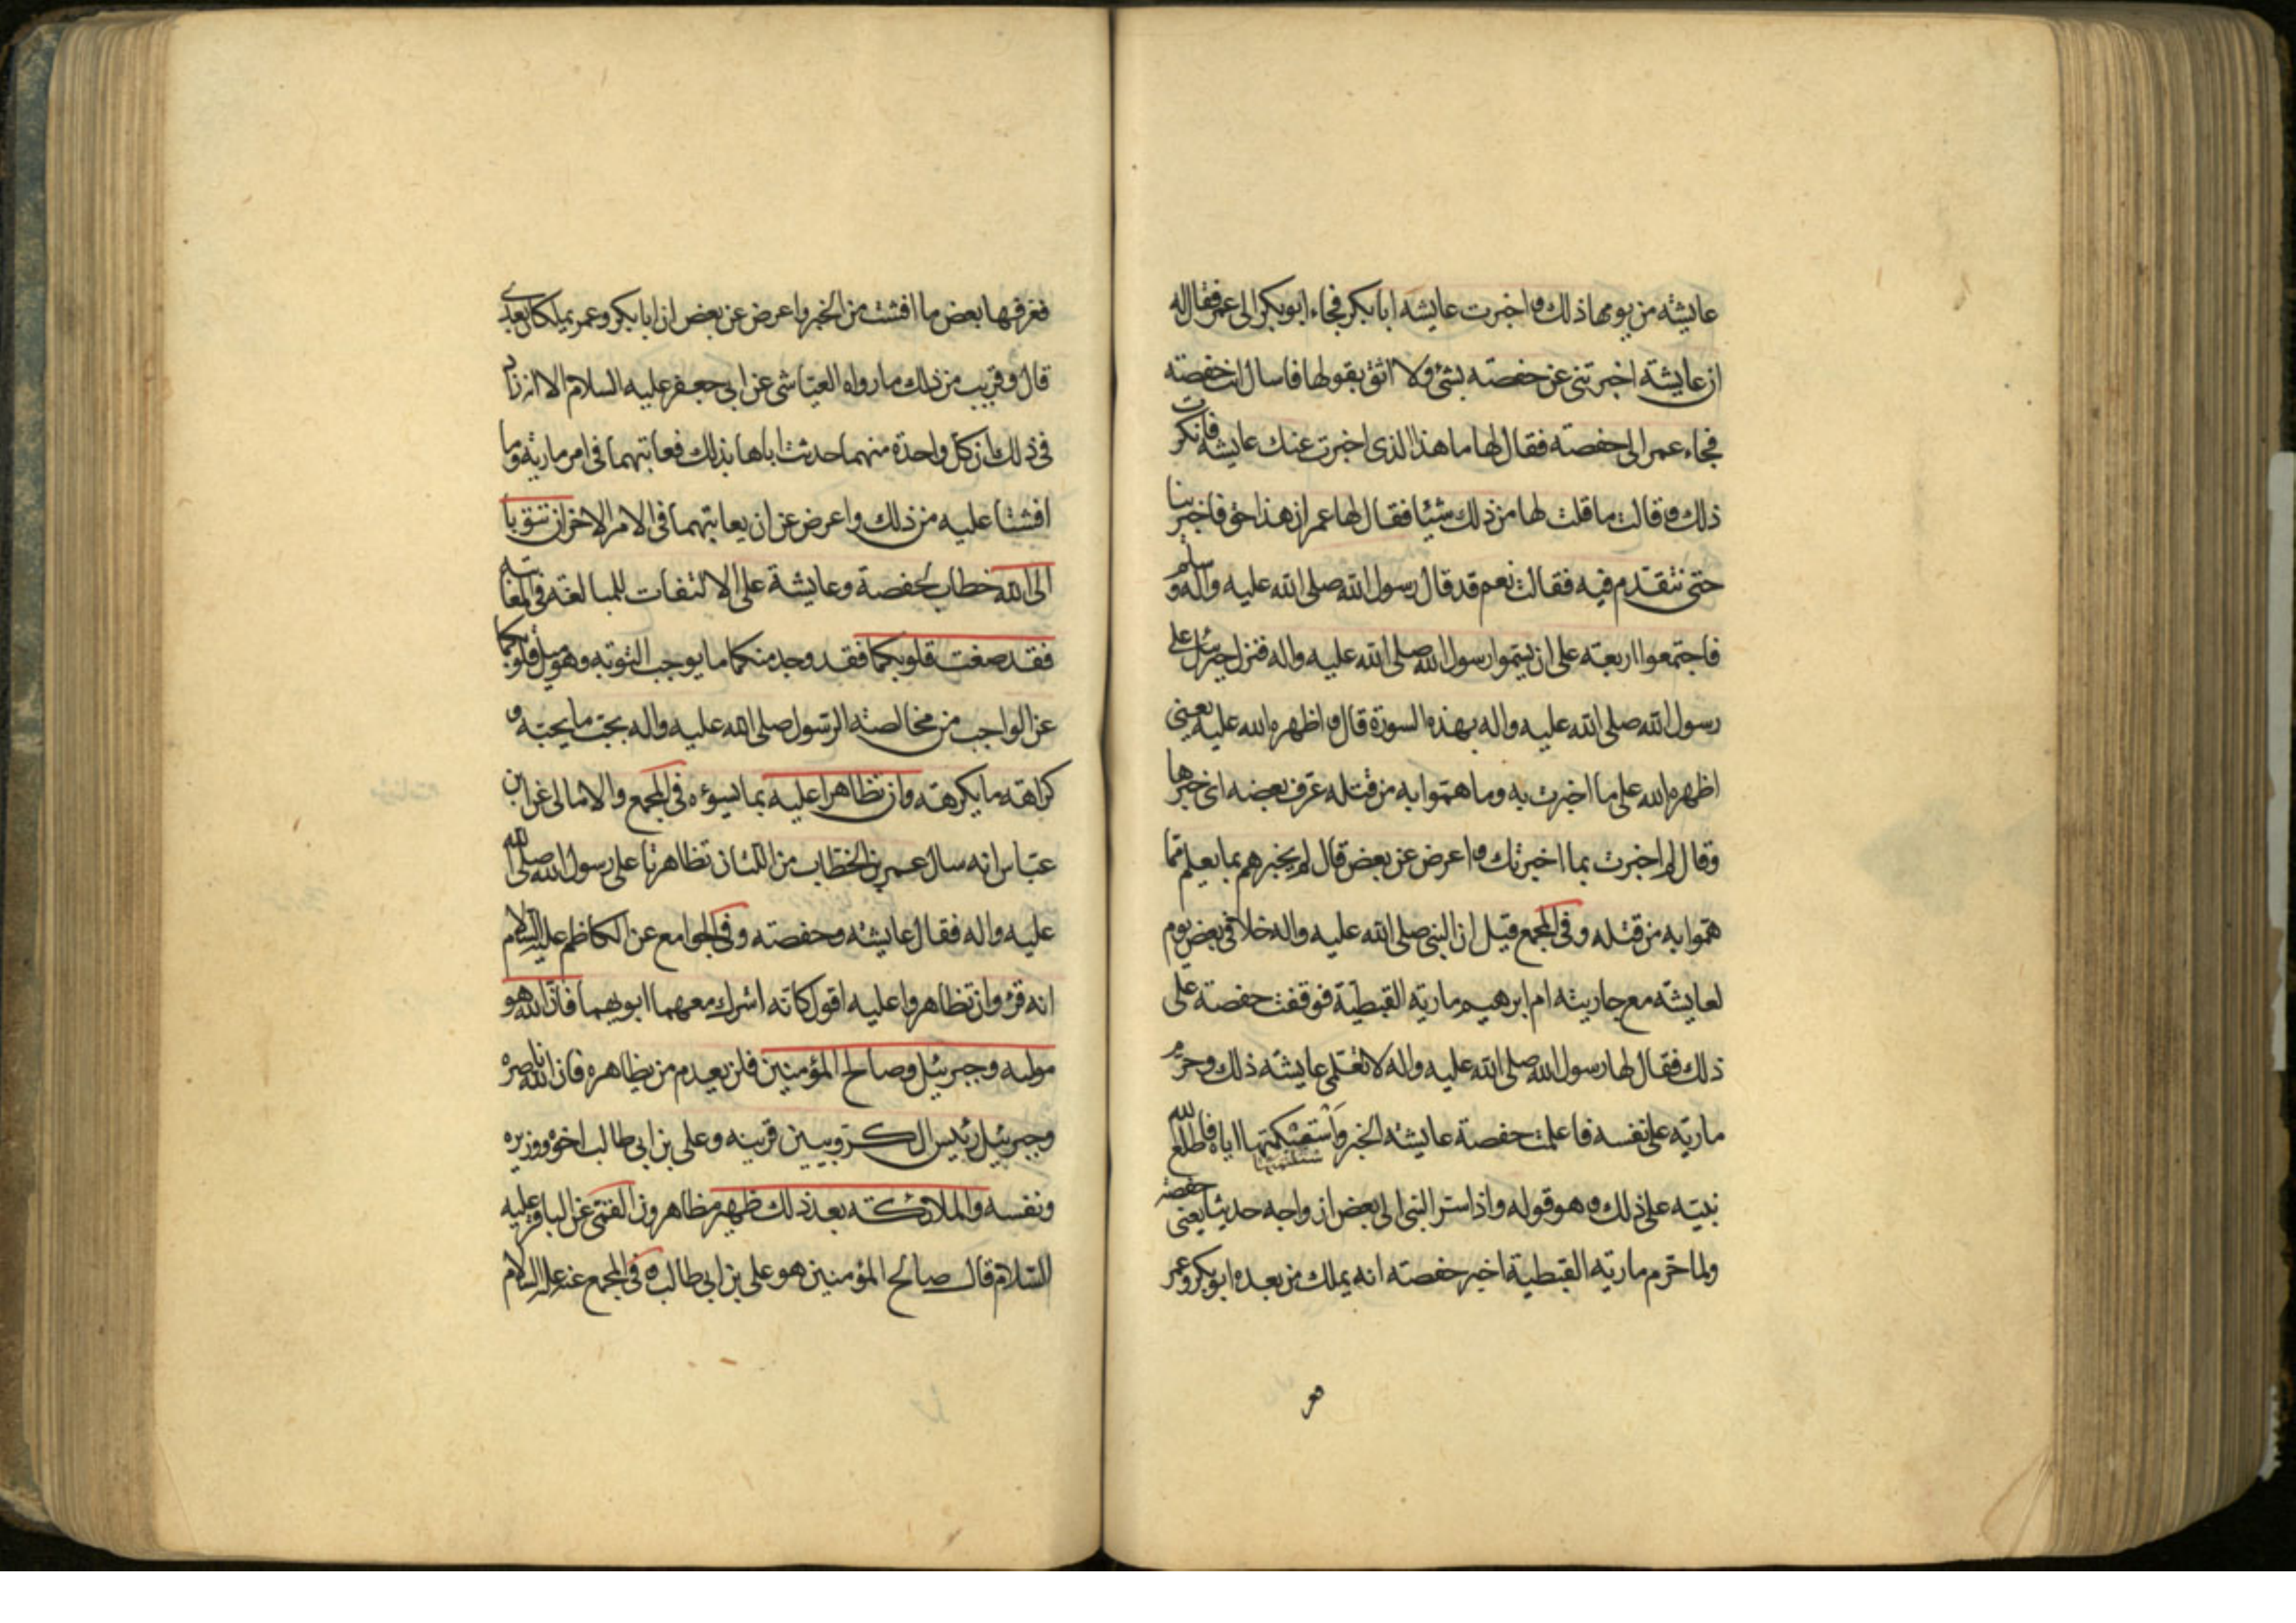 عايشه من يومها ذلك و اخبرت عايشه ابا بكر فجاء ابو بكر الى عمر فقال له
ان عايشة اخبرتنى عن حفصة بشئ ولا اثق بقولها فاسال انت حفصة
فجاء عمر الى حفصة فقال لها ما هذا الذى اخبرت عنك عايشه فانكرت
ذلك و قالت ما قلت لها من ذلك شيئا فقال لها عمر ان هذا حق فاخبرينا
حتى نتقدم فيه فقالت نعم قد قال رسول الله صلى الله عليه واله وسلم
فاجتمعوا اربعة على ان يسموا رسول الله صلى الله عليه واله فنزل جبرئيل على
رسول الله صلى الله عليه واله بهذه السورة قال و اظهره الله عليه يعنى
اظهره الله على ما اخبرت به وما هموا به من قتله عرف بعضه اى خبرها
وقال لم اخبرت بما اخبرتك و اعرض عن بعض قال لم يخبرهم بما يعلم مما
هموا به من قتله وفى المجمع قيل ان النبى صلى الله عليه واله خلا فى بعض يوم
لعايشة مع جاريته ام ابرهيم مارية القبطية فوقفت حفصة على
ذلك فقال لها رسول الله صلى الله عليه واله لا تعلمى عايشة ذلك وحرم
مارية على نفسه فاعلمت حفصة عايشه الخبر واستكتمتها اياه فاطلع الله
نبيه على ذلك و هو قوله واذ اسر النبى الى بعض ازواجه حديثا يعنى حفصة
ولما حرم مارية القبطية اخبر حفصة انه يملك من بعده ابو بكر وعمر
فعرفها بعض ما افشت من الخبر واعرض عن بعض ان ابا بكر وعمر يملكان بعدى
قال و قريب من ذلك ما رواه العياشى عن ابى جعفر عليه السلام الا انه زاد
فى ذلك ان كل واحدة منهما حدثت اباها بذلك فعاتبهما فى امر مارية وما
افشتا عليه من ذلك واعرض عن ان يعاتبهما فى الامر الاخر ان تتوبا
الى الله خطاب لحفصة وعايشة على الالتفات للمبالغة فى المعاتبة
فقد صغت قلوبكما فقد وجد منكما ما يوجب التوبة وهو ميل قلوبكما
عن الواجب من مخالصة الرسول صلى الله عليه واله بحب ما يحبه و
كراهة ما يكرهه وان تظاهرا عليه بما يسوءه فى المجمع والامالى عن ابن
عباس انه سال عمر بن الخطاب من اللتان تظاهرتا على رسول الله صلى الله
عليه واله فقال عايشه وحفصة وفى الجوامع عن الكاظم عليه السلام
انه قرء وان تظاهروا عليه اقول كانه اشرك معهما ابويهما فان الله هو
موليه وجبرئيل وصالح المؤمنين فلن يعدم من يظاهره فان الله ناصره
وجبرئيل رئيس الكروبيين قرينه وعلى بن ابى طالب اخوه ووزيره
ونفسه والملائكة بعد ذلك ظهير مظاهرون القمى عن الباقر عليه
السلام قال صالح المؤمنين هو على بن ابى طالب و فى المجمع عنه عليه السلام